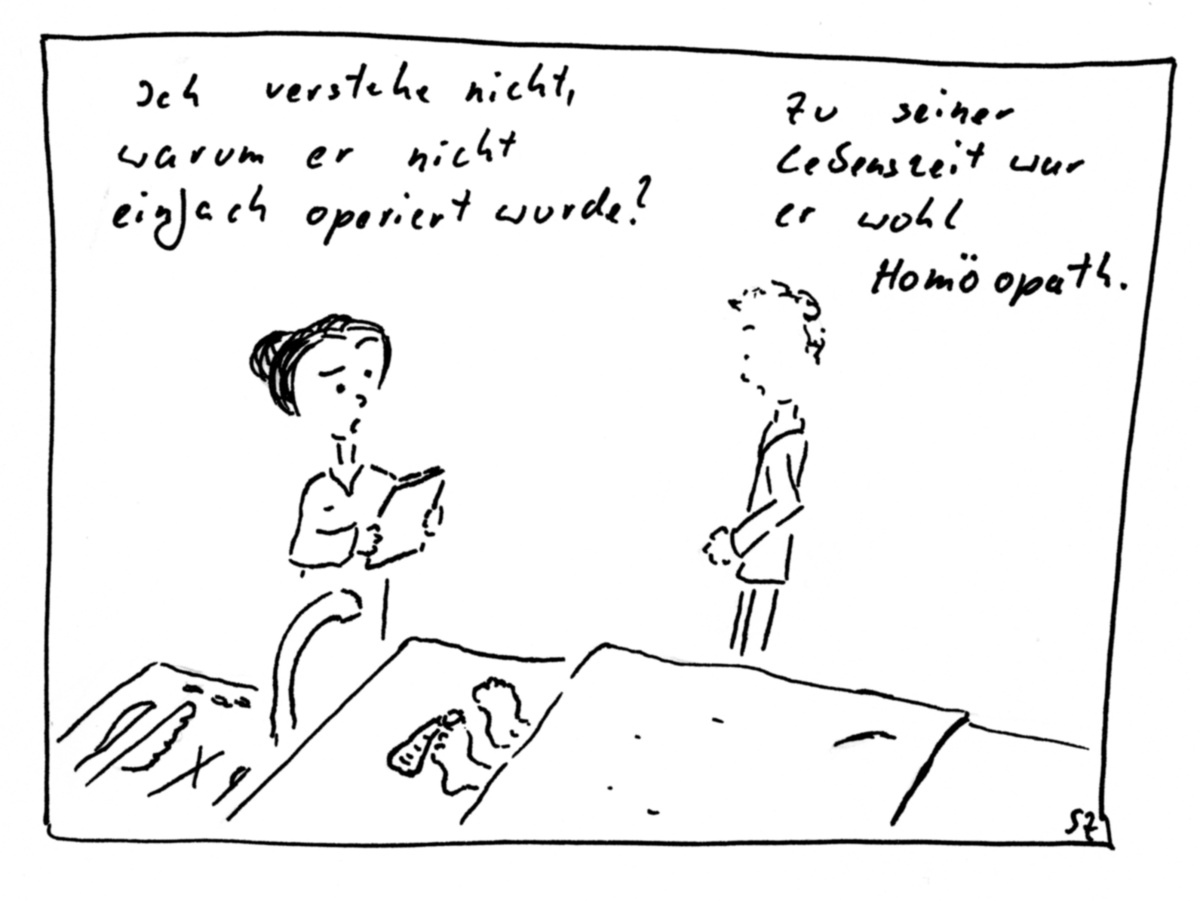 Ich verstehe nicht,
warum er nicht
einfach operiert wurde?
Zu seiner
Lebenszeit war
er wohl
Homöopath.
SZ